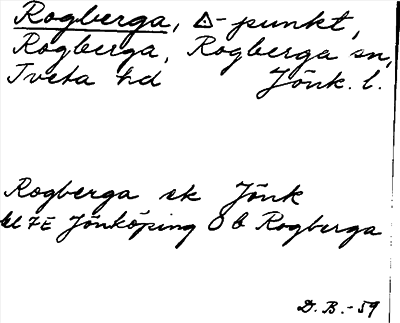 Rogberga, △-punkt,
Rogberga, Rogberga sn,
Tveta hd Jönk. l.
Rogberga sk Jönk
bl 7E Jönköping O b Rogberga
D. B. - 59